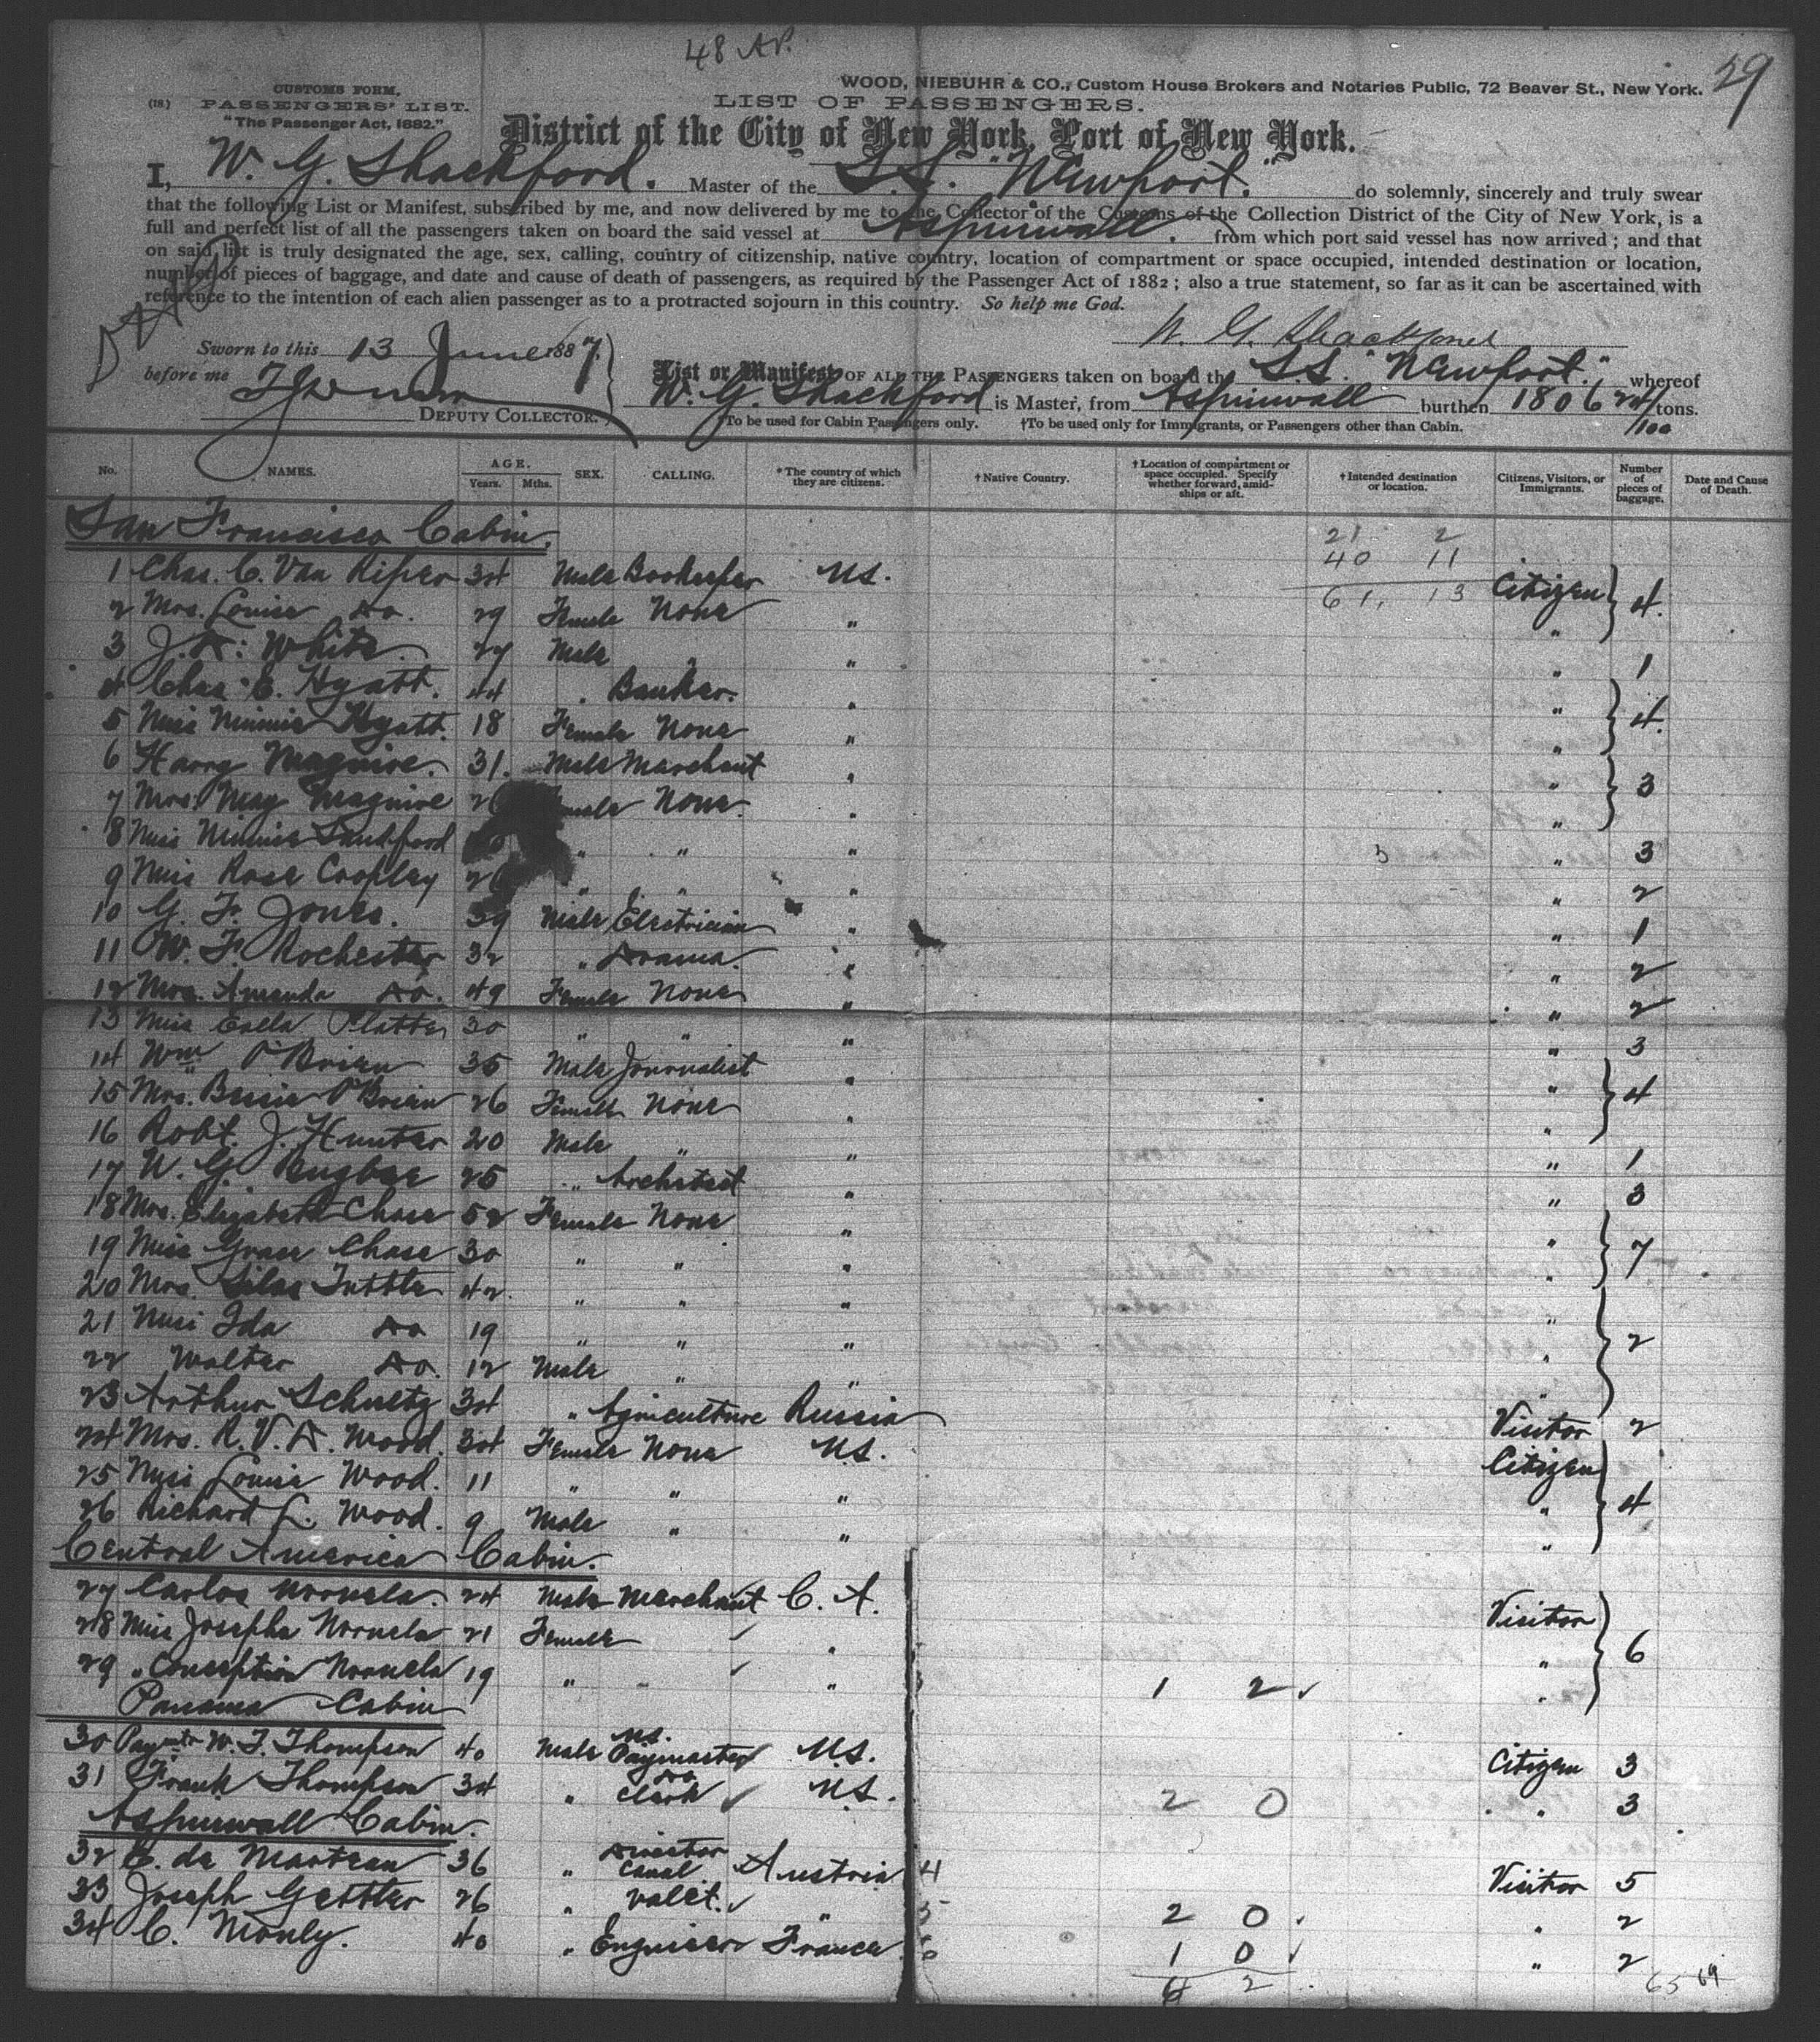 48
29
WOOD, NIEBUHR & CO., Custom House Brokers and Notaries Public, 72 Beaver St., New York.
CUSTOMS FORM.
(18.) PASSENGERS' LIST.
"The Passenger Act, 1882."
LIST OF PASSENGERS.
District of the City of New York, Port of New York.
I, W. G. Shackford. Master of the S.S. "Newport." do solemnly, sincerely and truly swear
that the following List or Manifest, subscribed by me, and now delivered by me to the Collector of the Customs of the Collection District of the City of New York, is a
full and perfect list of all the passengers taken on board the said vessel at Aspinwall. from which port said vessel has now arrived; and that
on said list is truly designated the age, sex, calling, country of citizenship, native country, location of compartment or space occupied, intended destination or location,
number of pieces of baggage, and date and cause of death of passengers, as required by the Passenger Act of 1882; also a true statement, so far as it can be ascertained with
reference to the intention of each alien passenger as to a protracted sojourn in this country. So help me God.
W. G. Shackford
Sworn to this 13 June 1887.
before me
DEPUTY COLLECTOR.
List or Manifest OF ALL THE PASSENGERS taken on board the S.S. "Newport." whereof
W. G. Shackford is Master, from Aspinwall burthen 1806 24/100 tons.
*To be used for Cabin Passengers only. †To be used only for Immigrants, or Passengers other than Cabin.
No. NAMES. AGE. Years. Mths. SEX. CALLING. *The country of which they are citizens. †Native Country. †Location of compartment or space occupied. Specify whether forward, amidships or aft. †Intended destination or location. Citizens, Visitors, or Immigrants. Number of pieces of baggage. Date and Cause of Death.
San Francisco Cabin.
21 2
40 11
61, 13
1 Chas. C. Van Riper 34 Male Bookeeper U.S. Citizen 4.
2 Mrs. Louise Do. 29 Female None " "
3 J. D. White. 27 Male " " " 1
4 Chas. E. Hyatt. 44 " Banker. " " 4.
5 Miss Minnie Hyatt. 18 Female None " "
6 Harry Maguire. 31. Male Marchant " " 3
7 Mrs. May Maguire Female None. " "
8 Miss Minnie Sandford " " " " 3
9 Miss Rose Coopley " " " " 2
10 G. F. Jones. 39 Male Electrician " " 1
11 W. F. Rochester 32 " Drama. " " 2
12 Mrs. Amanda Do. 49 Female None " " 2
13 Miss Eaella Platter 30 " " " " 3
14 Wm O'Brien 35 Male Journalist " " 4
15 Mrs. Bessie O'Brien 26 Female None " "
16 Robt. J. Hunter 20 Male " " " 1
17 W. G. 25 " Architect " " 3
18 Mrs. Elizabeth Chase 52 Female None " " 7
19 Miss Grace Chase 30 " " " "
20 Mrs. Silas Tuttle 42. " " " " 2
21 Miss Ida Do 19 " " " "
22 Walter Do. 12 Male " " "
23 Arthur Schultz 34 " Agriculture Russia Visitor 2
24 Mrs. R. V. D. Wood. 34 Female None U.S. Citizen 4
25 Miss Louise Wood. 11 " " " "
26 Richard L. Wood. 9 Male " " "
Central America Cabin.
27 Carlos 24 Male Merchant C. A. Visitor 6
28 Miss Josepha 21 Female " "
29 " Conception 19 " " " 1 2 "
Panama Cabin
30 W. J. Thompson 40 Male U.S. Paymaster U.S. Citizen 3
31 Frank Thompson 34 " Do Clerk U.S. 2 0 " 3
Aspinwall Cabin.
32 de 36 " Director Canal Austria 4 Visitor 5
33 Joseph Gettler 26 " Valet. " 2 0 " 2
34 C. Monly. 40 " Engineer France 1 0 " 2
6 2
65 69